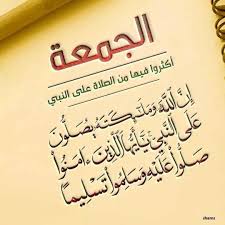 الجمعة
أكثروا فيها من الصلاة على النبي
إِنَّ اللَّهَ وَمَلَٰٓئِكَتَهُ يُصَلُّونَ
عَلَى النَّبِيِّ يَٰٓأَيُّهَا الَّذِينَ ءَامَنُوا
صَلُّوا عَلَيْهِ وَسَلِّمُوا تَسْلِيمًا